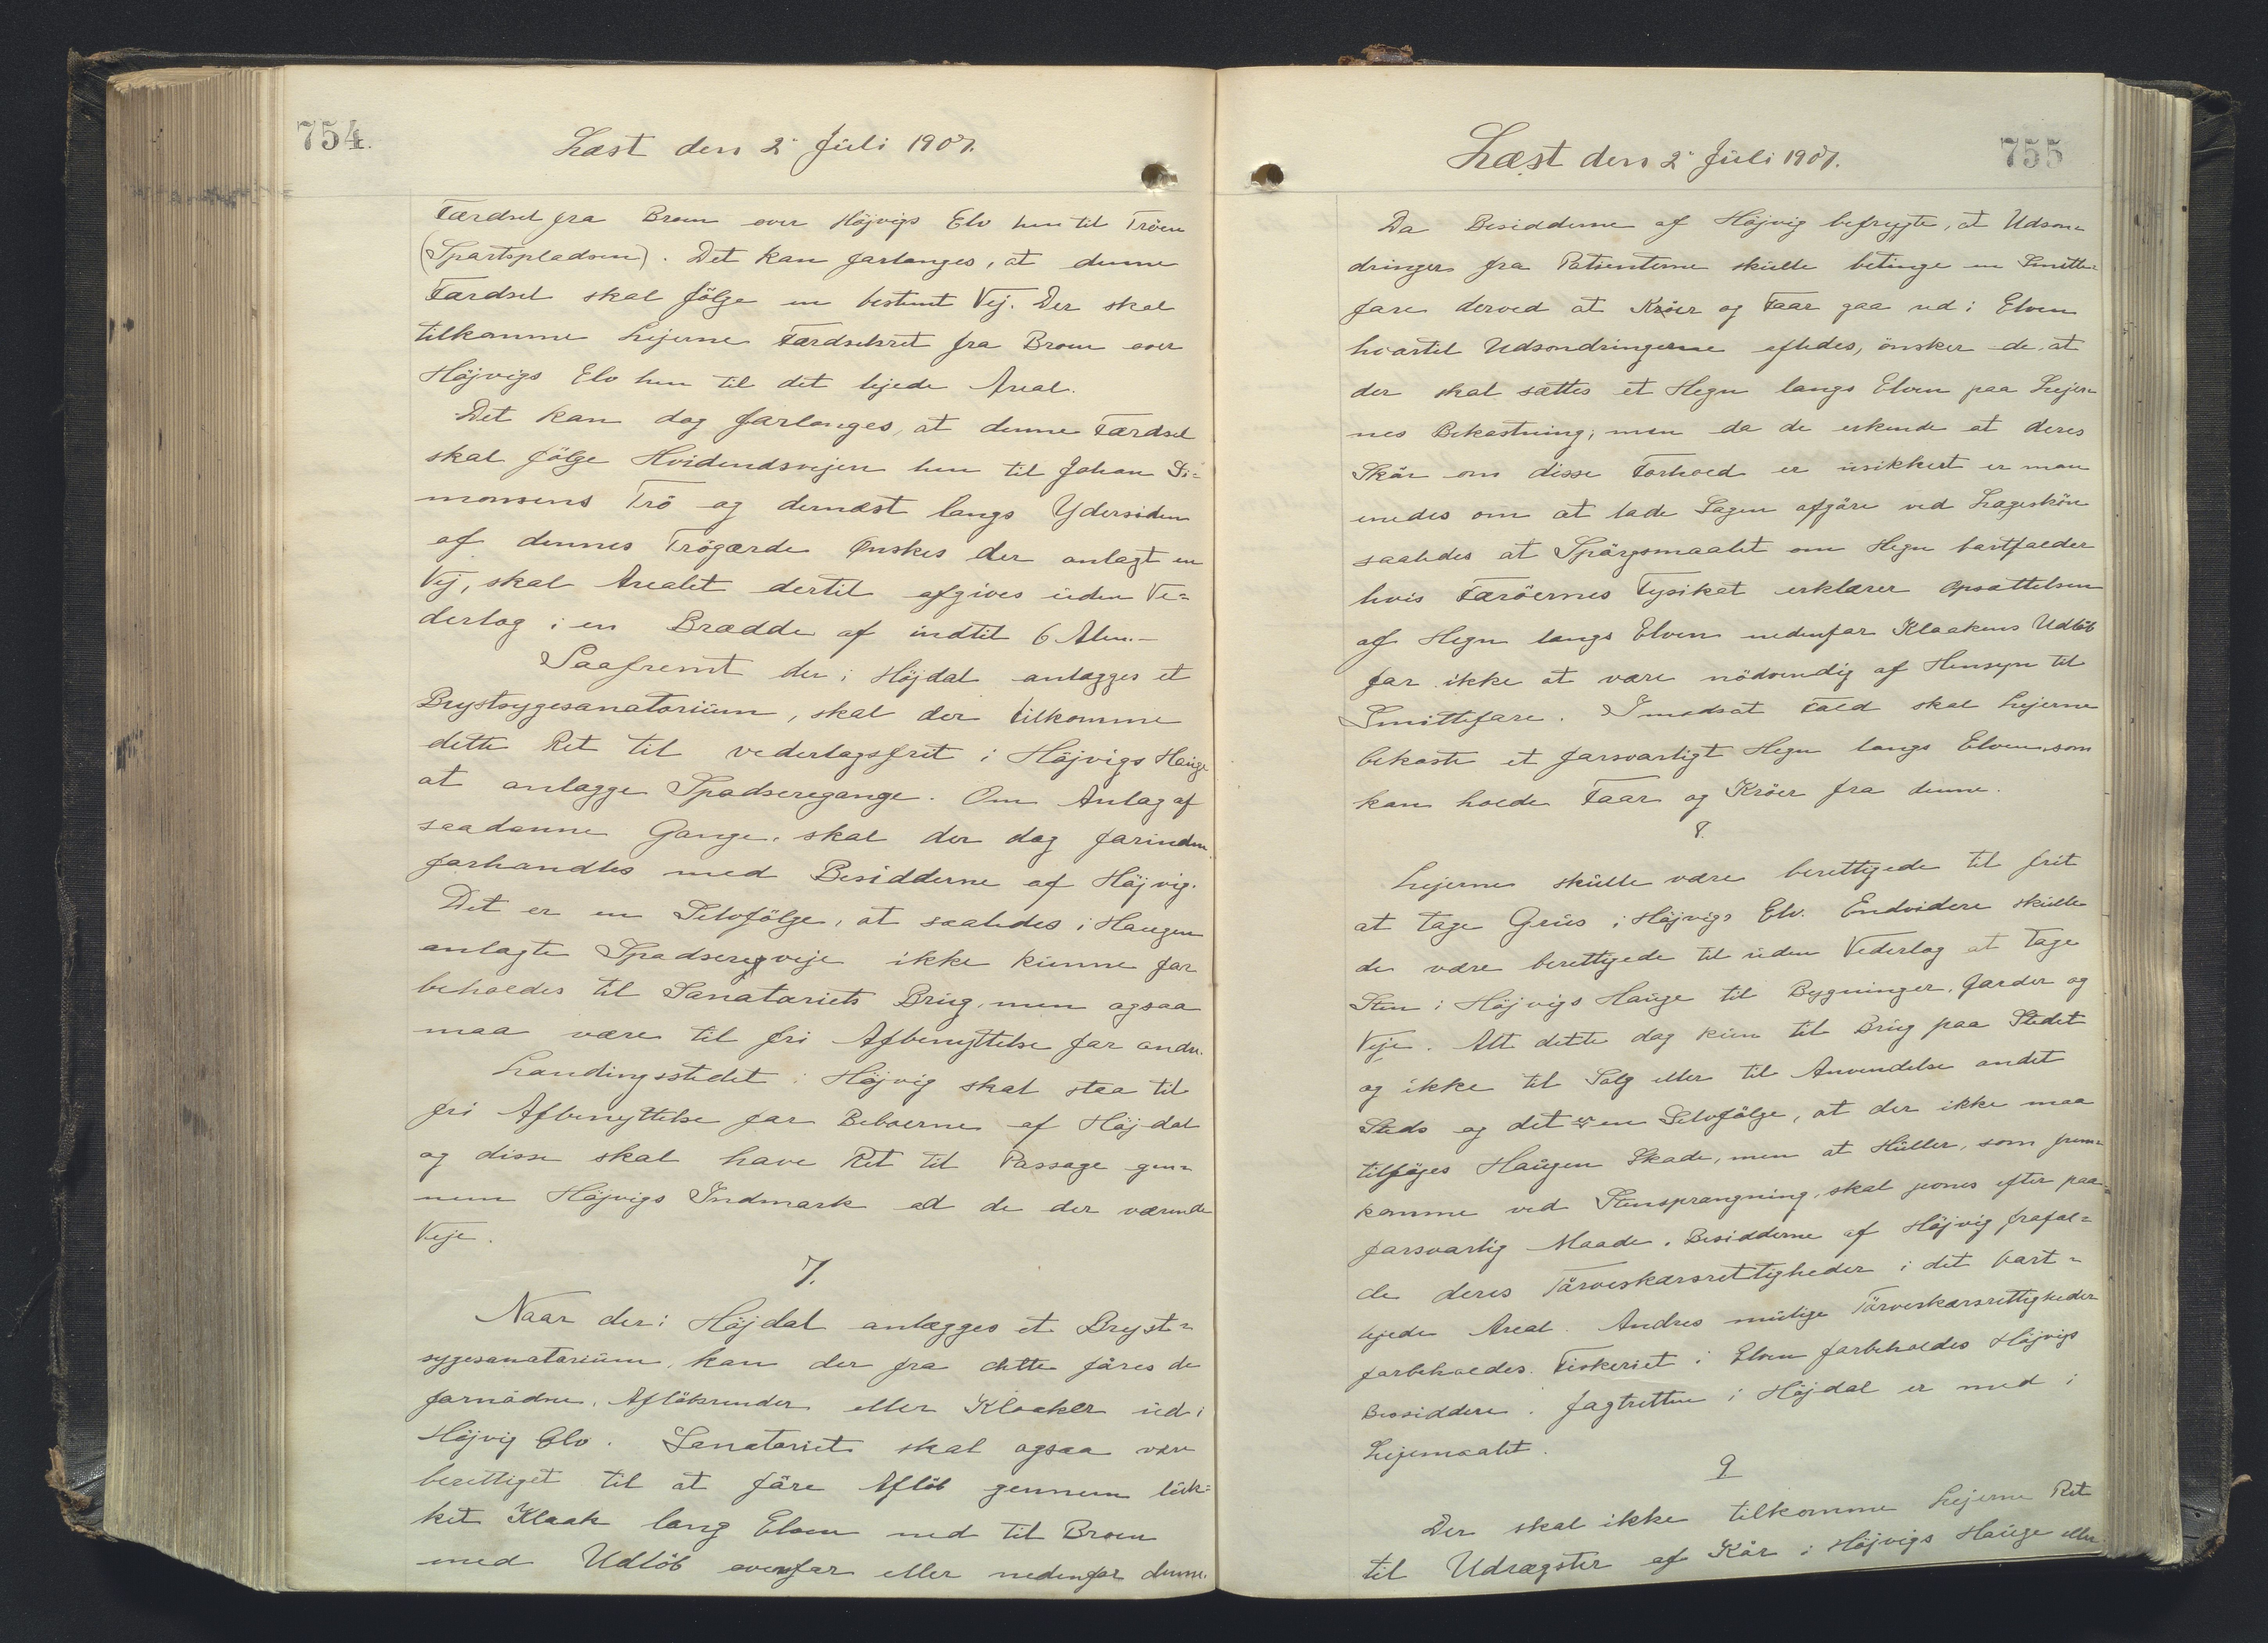 754.
Læst den 2' Juli 1907.
Færdsel fra Broen over Höjvigs Elv hen til Tröen
(Sportspladsen). Det kan forlanges, at denne
Færdsel skal fölge en bestemt Vej. Der skal
tilkomme Lejerne Færdselsret fra Broen over
Höjvigs Elv hen til det lejede Areal.
Det kan dog forlanges, at denne Færdsel
skal fölge Hvidendsvejen hen til Johan Si=
monsens Trö og dernæst langs Ydersiden
af dennes Trögærde Ønskes der anlagt en
Vej, skal Arealet dertil afgives uden Ve=
derlag i en Brædde af indtil 6 Alen.-
Saafremt der i Höjdal anlægges et
Brystsygesanatorium, skal der tilkomme
dette Ret til vederlagsfrit i Höjvigs Hauge
at anlægge Spadseregange. Om Anlag af
saadanne Gange, skal der dog forinden
forhandles med Besidderne af Höjvig.
Det er en Selvfölge, at saaledes i Haugen
anlagte Spadsereveje ikke kunne for
beholdes til Sanatoriets Brug, men ogsaa
maa være til fri Afbenyttelse for andre.
Landingsstedet i Höjvig skal staa til
fri Afbenyttelse for Beboerne af Höjdal
og disse skal have Ret til Passage gen=
nem Höjvigs Indmark ad de der værende
Veje.
7.
Naar der i Höjdal anlægges et Bryst=
sygesanatorium, kan der fra dette föres de
fornödne Aflöbsrender eller Kloaker ud i
Höjvig Elv. Sanatoriet skal ogsaa være
berettiget til at före Aflöb gennem luk=
ket Kloak lang Elven ned til Broen
med Udlöb ovenfor eller nedenfor denne.
Læst den 2' Juli 1907.
755
Da Besidderne af Höjvig befrygte, at Udson=
dringer fra Patienterne skulle betinge en Smitte=
fare derved at Kröer og Faar gaa ud i Elven
hvortil Udsondringerne afledes, önsker de, at
der skal sættes et Hegn langs Elven paa Lejer=
nes Bekostning; men da de erkende at deres
Skön om disse Forhold er usikkert er man
enedes om at lade Sagen afgöre ved Lægeskön
saaledes at Spörgsmaalet om Hegn bortfalder
hvis Færöernes Fysikat erklærer Opsættelsen
af Hegn langs Elven nedenfor Kloakens Udlöb
for ikke at være nödvendig af Hensyn til
Smittefare. I modsat Fald skal Lejerne
bekoste et forsvarligt Hegn langs Elven, som
kan holde Faar og Kröer fra denne.
8.
Lejerne skulle være berettigede til frit
at tage Grus i Höjvigs Elv. Endvidere skulle
de være berettigede til uden Vederlag at tage
Sten i Höjvigs Hauge til Bygninger, Gærder og
Veje. Alt dette dog kun til Brug paa Stedet
og ikke til Salg eller til Anvendelse andet
Steds og det er en Selvfölge, at der ikke maa
tilföjes Haugen Skade, men at Huller, som frem=
komme ved Stensprængning, skal jevnes efter paa=
forsvarlig Maade. Besidderne af Höjvig frafal=
de deres Törveskærsrettigheder i det bort=
lejede Areal. Andres mulige Törveskærsrettigheder
forbeholdes. Fiskeriet i Elven forbeholdes Höjvigs
Bessiddere. Jagtretten i Höjdal er med i
Lejemaalet.
9
Der skal ikke tilkomme Lejerne Ret
til Udrægster af Kör i Höjvigs Hauge eller